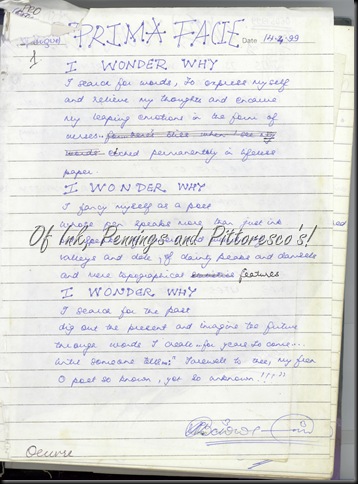 PRIMA FACIE
Date 14.4.99
1
I WONDER WHY
I search for words, to express myself
and relieve my thoughts and
my leaping emotions in the form of
verses
permanently in
paper
I WONDER WHY
I fancy myself as a poet
whose speaks more than just ink
Of Ink, Pennings and Pittoresco's!
valleys and dale, of dainty peaks and damsels
and mere topographical features
I WONDER WHY
I search for the past
dig out the present and imagine the future
through words I create.. for years to come...
until someone tells.. " Farewell to thee, my
O poet so known, yet so unknown !!! "